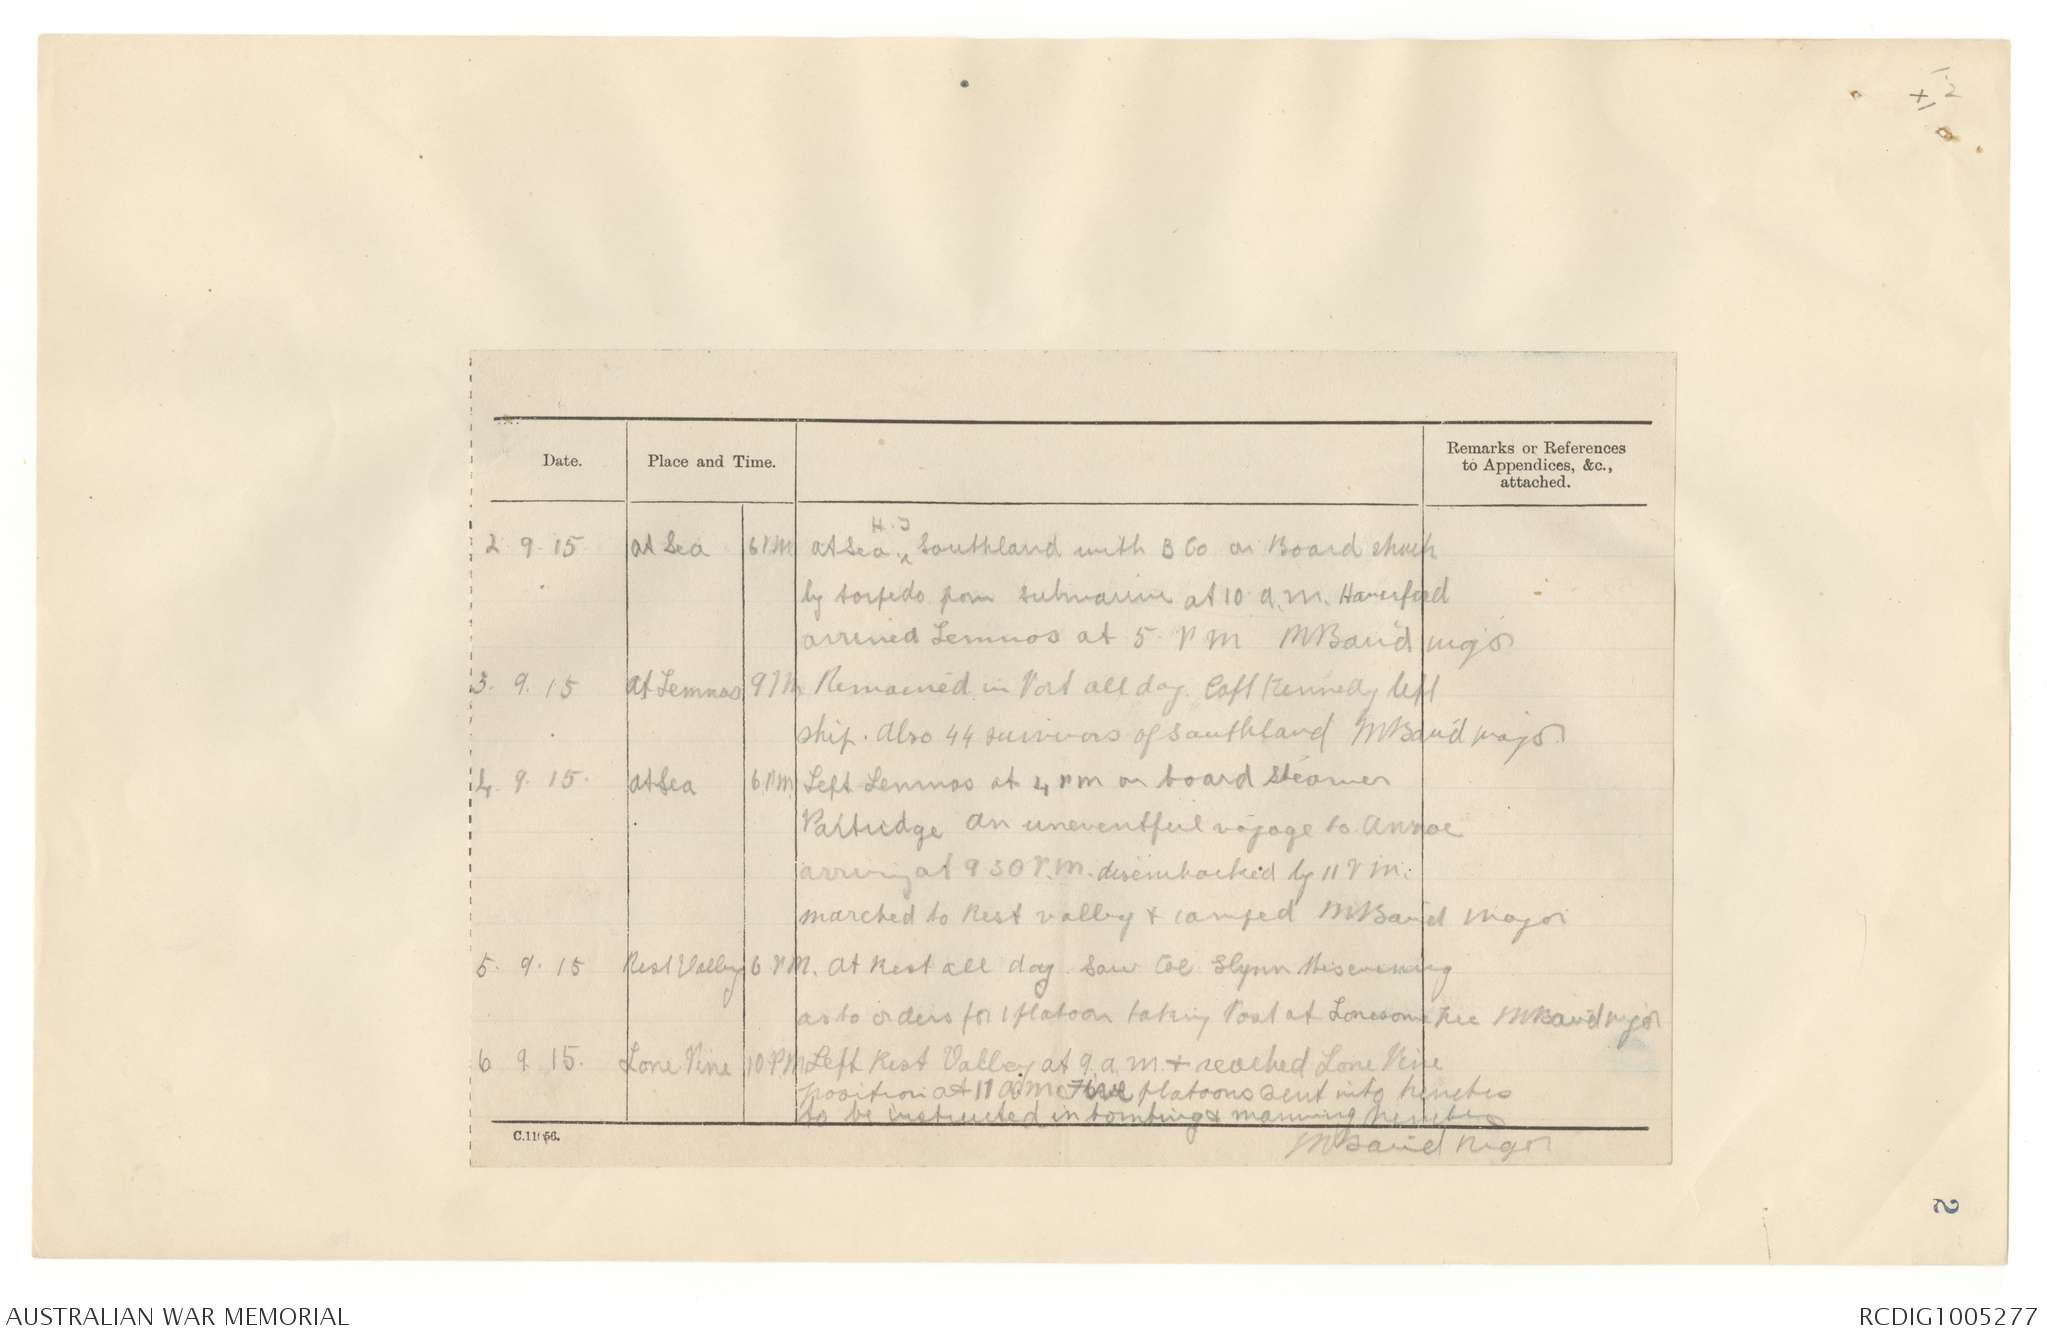 2
Date.
Place and Time.
Remarks or References
to Appendices, &c.,
attached.
2. 9. 15 at Sea 6 PM at Sea H.T Southland with B Co on Board struck
by torpedo from submarine at 10 a.m. Haverford
arrived Lemnos at 5 PM M Baird major
3. 9. 15 at Lemnos 9 PM Remained in Port all day. Capt Kennedy left
ship. Also 44 survivors of Southland M Baird major
4. 9. 15. at Sea 6 PM Left Lemnos at 4 PM on board Steamer
Partridge an uneventful voyage to Anzac
arriving at 9 30 P.M. disembarked by 11 PM.
marched to Rest valley & camped M Baird Major
5. 9. 15 Rest Valley 6 PM. At Rest all day saw Col Flynn this evening
as to orders for 1 platoon taking Post at Lonesome Tree M Baird major
6 9. 15. Lone Pine 10 PM Left Rest Valley at 9 a.m. & reached Lone Pine
position at 11 a.m. platoons sent into trenches
to be instructed in bombing & manning trenches
M Baird Major
2
AUSTRALIAN WAR MEMORIAL
RCDIG1005277